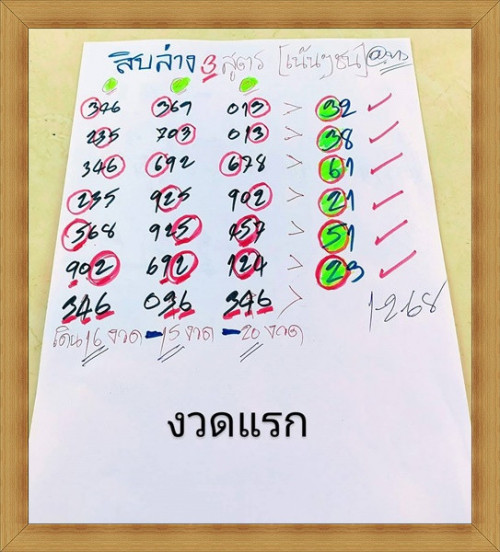 สิบล่าง 3 สูตร [เน้นๆชน]
346 369 013 > 32 ✓
235 703 013 > 38 ✓
346 692 678 > 61 ✓
235 925 902 > 21 ✓
568 925 257 > 51 ✓
902 692 124 > 23 ✓
346 036 346 >
1-2-68
โดน 16 งวด - 15 งวด - 20 งวด
งวดแรก